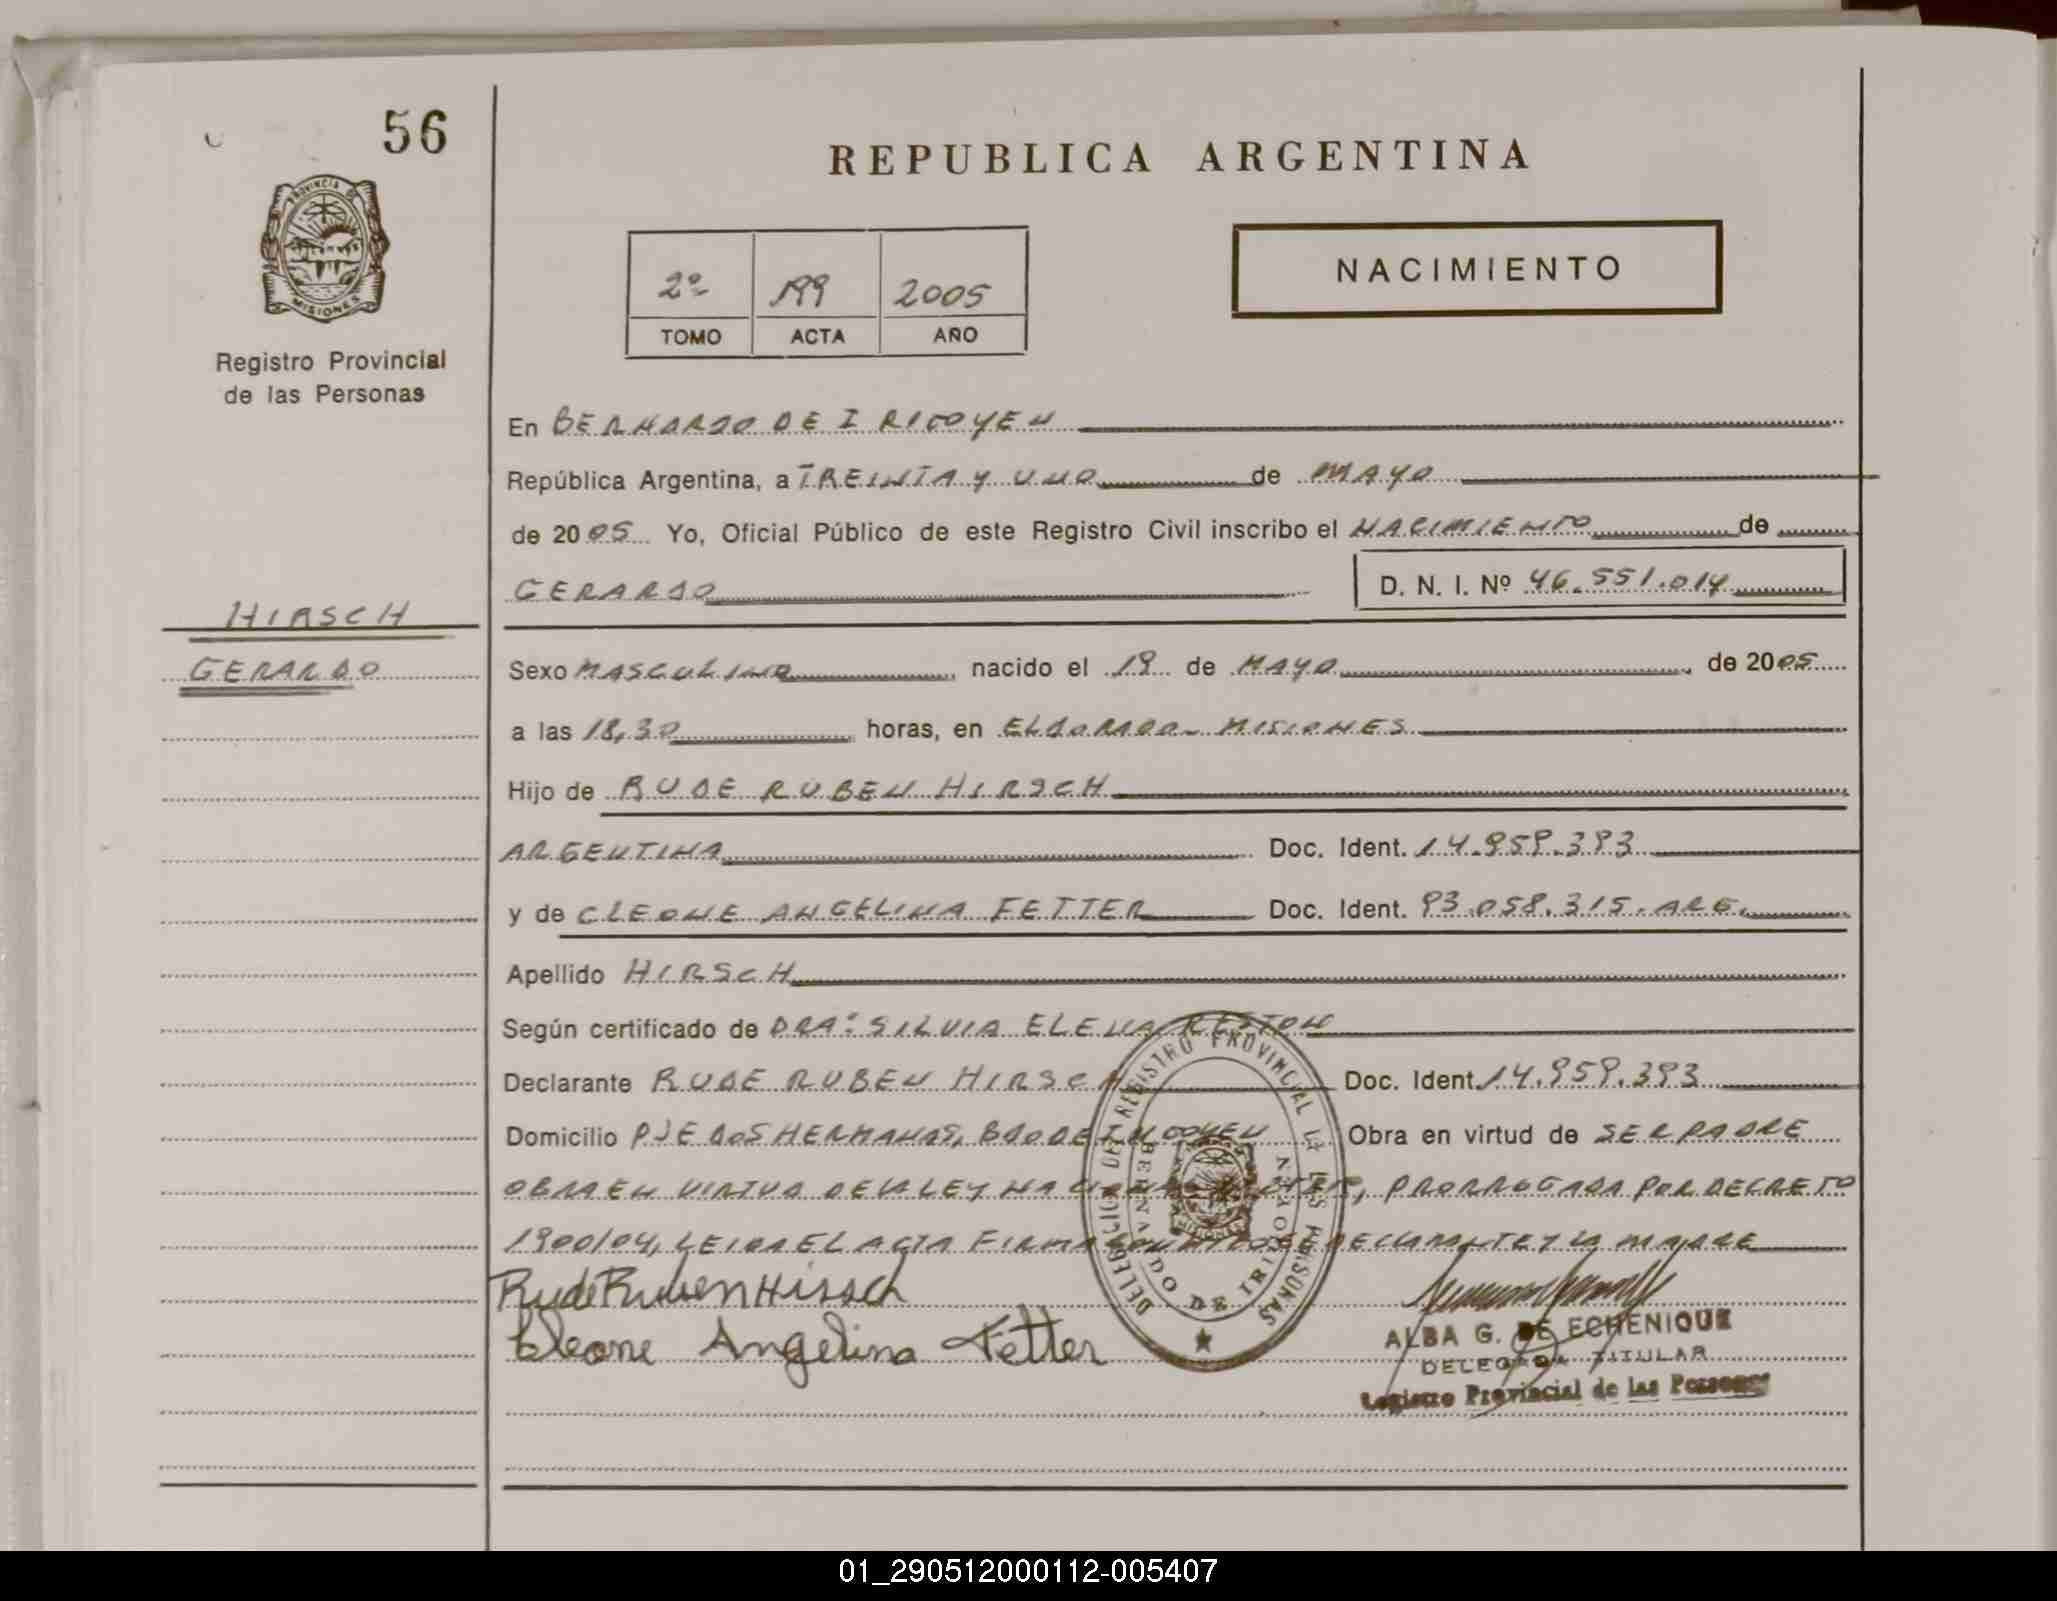 56
REPUBLICA ARGENTINA
PROVINCIA DE
MISIONES
Registro Provincial
de las Personas
2º 199 2005
TOMO ACTA AÑO
NACIMIENTO
En BERNARDO DE IRIGOYEN
República Argentina, a TREINTA Y UNO de MAYO
de 2005 Yo, Oficial Público de este Registro Civil inscribo el NACIMIENTO de
GERARDO D. N. I. Nº 46.551.014
HIRSCH
GERARDO
Sexo MASCULINO nacido el 19 de MAYO, de 2005
a las 18,30 horas, en ELDORADO - MISIONES
Hijo de RUDE RUBEN HIRSCH
ARGENTINA Doc. Ident. 14.959.393
y de CLEONE ANGELINA FETTER Doc. Ident. 93.058.315. ARG.
Apellido HIRSCH
Según certificado de DRA. SILVIA ELENA RESTON
Declarante RUDE RUBEN HIRSCH Doc. Ident. 14.959.393
Domicilio PJE DOS HERMANAS, BDO DE IRIGOYEN Obra en virtud de SER PADRE
OBRA EN VIRTUD DE LA LEY NACIONAL PRORROGADA POR DECRETO
1900/04, LEIDA EL ACTA FIRMAN DECLARANTE Y LA MADRE
Rude Ruben Hirsch
Cleone Angelina Fetter
DELEGACION DEL REGISTRO PROVINCIAL DE LAS PERSONAS
BERNARDO DE IRIGOYEN
ALBA G. DE ECHENIQUE
DELEGADA TITULAR
Registro Provincial de las Personas
01_290512000112-005407